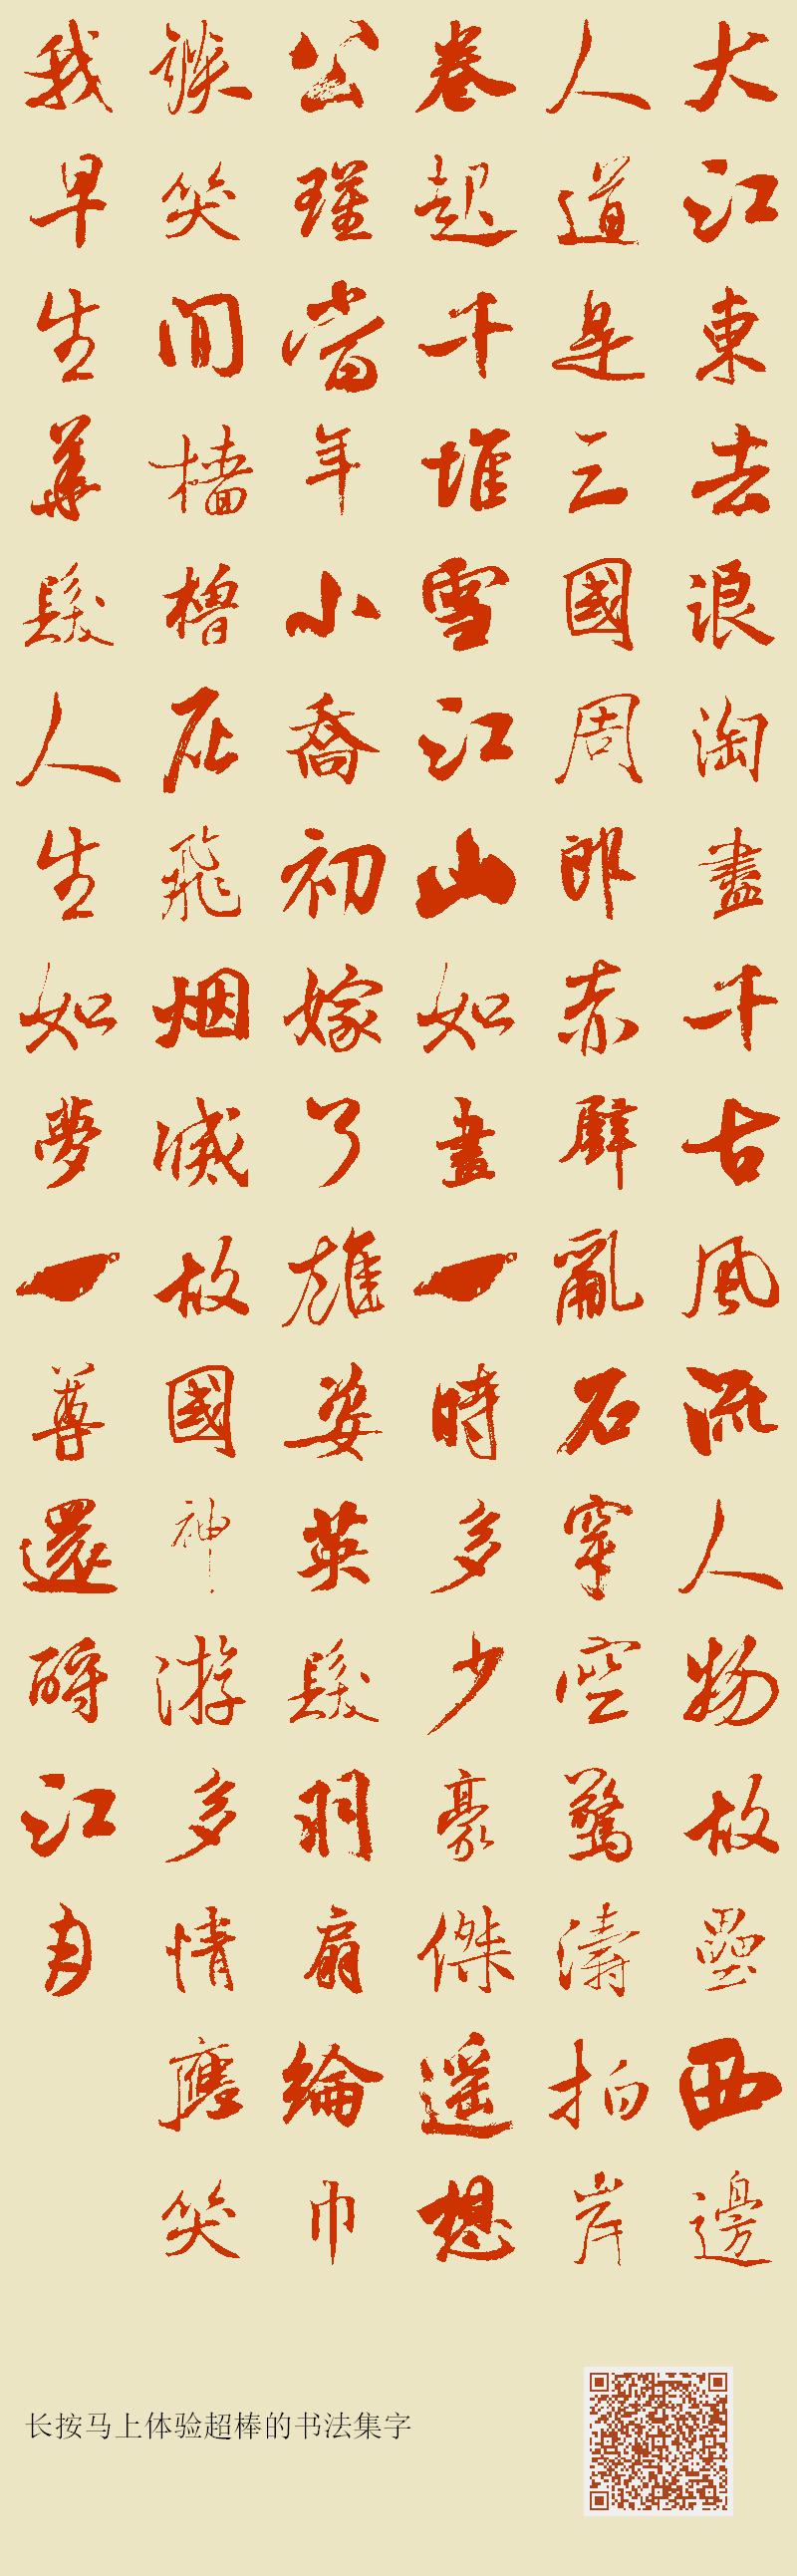 大江東去浪淘盡千古風流人物故壘西邊
人道是三國周郎赤壁亂石穿空驚濤拍岸
卷起千堆雪江山如畫一時多少豪傑遥想
公瑾當年小喬初嫁了雄姿英髮羽扇綸巾
談笑間檣櫓灰飛烟滅故國神游多情應笑
我早生華髮人生如夢一尊還酹江月
长按马上体验超棒的书法集字